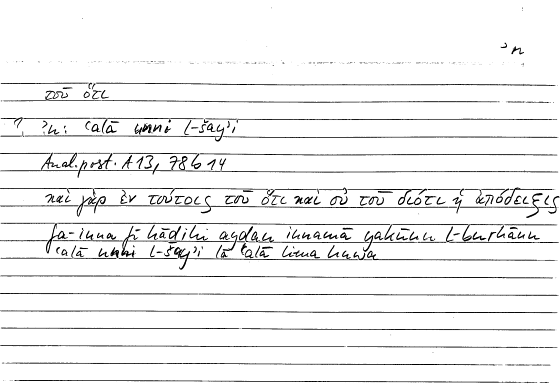 ʾn
τοῦ ὅτι
ʾn: ʿalā anni l-šayʾi
Anal.post. A 13, 78b14
καὶ γὰρ ἐν τούτοις τοῦ ὅτι καὶ οὐ τοῦ διότι ἡ ἀπόδειξις
fa-inna fī hāḏihi ayḍan innamā yakūnu l-burhānu
ʿalā anni l-šayʾi lā ʿalā lima huwa